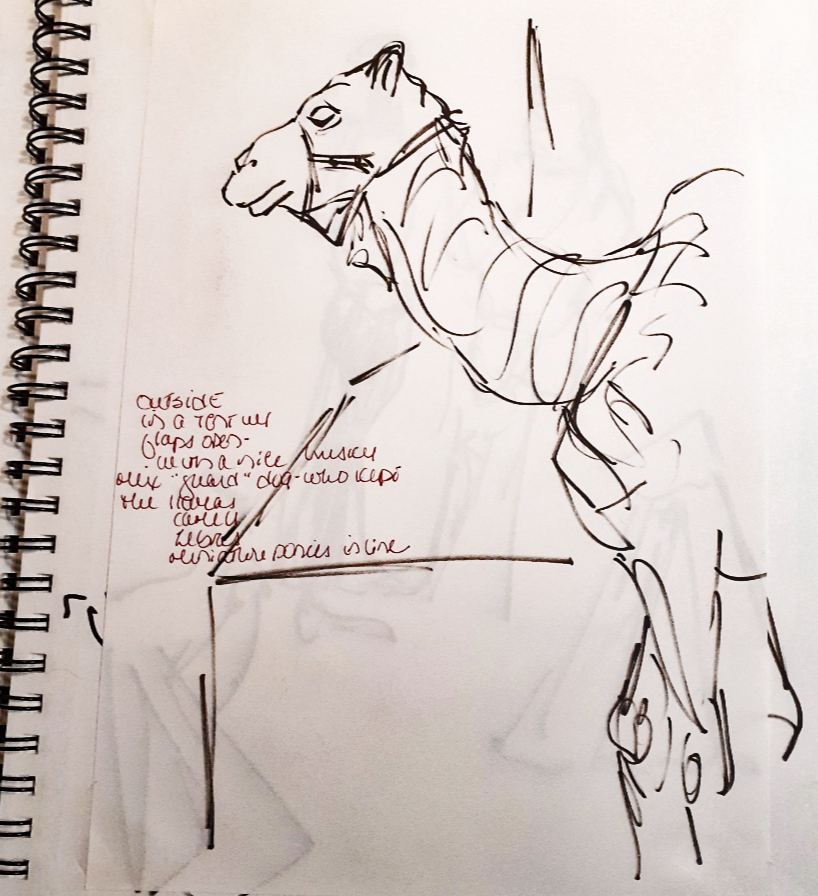 OUTSIDE
in a tent w/
flaps open-
a nice husky
mix "guard" dog-who kept
the llamas
camels
zebras
miniature ponies in line